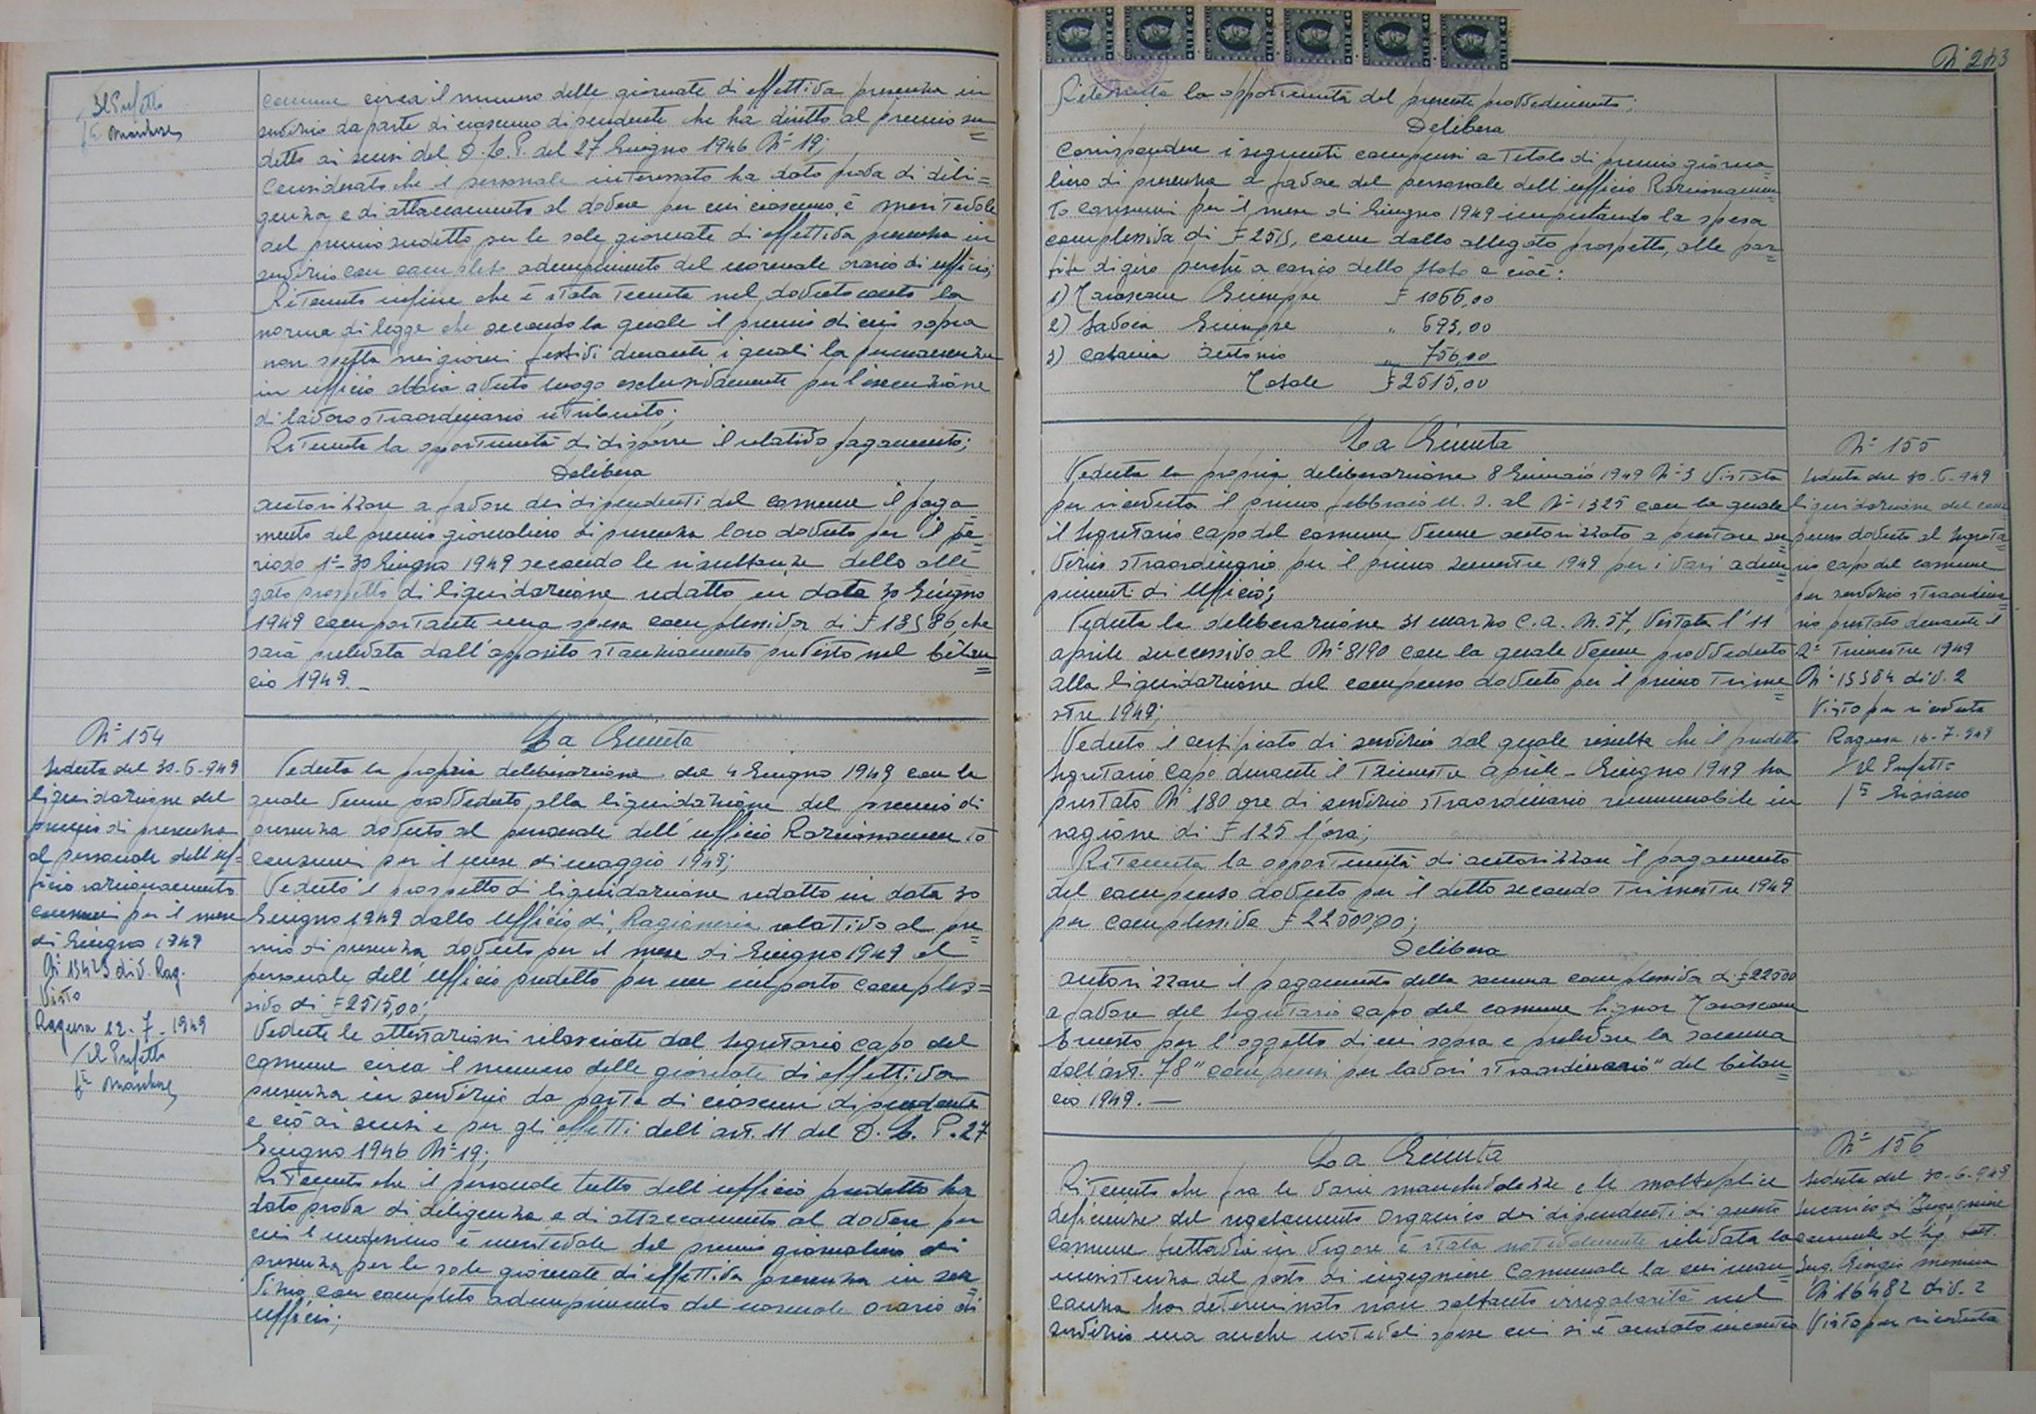 Il Prefetto
comune circa il numero delle giornate di effettiva presenza in
servizio da parte di ciascuno dipendente che ha diritto al premio su=
detto ai sensi del D.L.P. del 27 Giugno 1946 N° 19;
Considerato che il personale interessato ha dato prova di dili=
genza e di attaccamento al dovere per cui ciascuno è meritevole
del premio sudetto per le sole giornate di effettiva presenza in
servizio con completo adempimento del normale orario di ufficio;
Ritenuto infine che è stata tenuta nel dovuto conto la
norma di legge che secondo la quale il premio di cui sopra
non spetta nei giorni festivi durante i quali la permanenza
in ufficio abbia avuto luogo esclusivamente per l'esecuzione
di lavoro straordinario retribuito;
Ritenuta la opportunità di disporre il relativo pagamento;
Delibera
autorizzare a favore dei dipendenti del comune il paga
mento del premio giornaliero di presenza loro dovuto per il pe=
riodo 1°-30 Giugno 1949 secondo le risultanze dello alle
gato prospetto di liquidazione redatto in data 30 Giugno
1949 comportante una spesa complessiva di £ che
sarà prelevata dall'apposito stanziamento previsto nel bilan=
cio 1949.—
N° 154
Seduta del 30-6-949
liquidazione del
premio di presenza
al personale dell'uf=
ficio razionamento
consumi per il mese
di Giugno 1949
N° 13423 div. Rag.
Visto
Ragusa 12-7-1949
Il Prefetto
La Giunta
Veduta la propria deliberazione del 4 Giugno 1949 con la
quale venne provveduto alla liquidazione del premio di
presenza dovuto al personale dell'ufficio Razionamento
consumi per il mese di maggio 1949;
Veduto il prospetto di liquidazione redatto in data 30
Giugno 1949 dallo Ufficio di Ragioneria relativo al pre=
mio di presenza dovuto per il mese di Giugno 1949 al
personale dell'Ufficio predetto per un importo comples=
sivo di £ 2515,00;
Vedute le attestazioni rilasciate dal Segretario capo del
comune circa il numero delle giornate di effettiva
presenza in servizio da parte di ciascun dipendente
e ciò ai sensi e per gli effetti dell'art. 11 del D.L.P. 27
Giugno 1946 N° 19;
Ritenuto che il personale tutto dell'ufficio predetto ha
dato prova di diligenza e di attaccamento al dovere per
cui il medesimo è meritevole del premio giornaliero di
presenza per le sole giornate di effettiva presenza in ser=
vizio con completo adempimento del normale orario di
ufficio;
N° 243
Ritenuta la opportunità del presente provvedimento;
Delibera
Corrispondere i seguenti compensi a titolo di premio giorna=
liero di presenza a favore del personale dell'ufficio Razionamen=
to consumi per il mese di Giugno 1949 imputando la spesa
complessiva di £ 2515, come dallo allegato prospetto, alle par=
tite di giro perché a carico dello Stato e cioè:
1) Tarascone Giuseppe £ 1066,00
2) Savoia Giuseppe " 693,00
3) Catania Antonio " 756,00
Totale £ 2515,00
La Giunta
Veduta la propria deliberazione 8 Gennaio 1949 N° 3 Vistata
per ricevuta il primo febbraio u.s. al N° 1325 con la quale
il Segretario capo del comune venne autorizzato a prestare ser=
vizio straordinario per il primo semestre 1949 per i vari adem=
pimenti di Ufficio;
Veduta la deliberazione 31 marzo c.a. N. 57, Vistata l'11
aprile successivo al N° 8190 con la quale venne provveduto
alla liquidazione del compenso dovuto per il primo trime=
stre 1949;
Veduto il certificato di servizio dal quale risulta che il predetto
Segretario Capo durante il Trimestre aprile-Giugno 1949 ha
prestato N° 180 ore di servizio straordinario remunerabile in
ragione di £ 125 l'ora;
Ritenuta la opportunità di autorizzare il pagamento
del compenso dovuto per il detto secondo Trimestre 1949
per complessive £ 22500,00;
Delibera
autorizzare il pagamento della somma complessiva di £ 22500
a favore del Segretario capo del comune Signor Tarascone
Ernesto per l'oggetto di cui sopra e prelevare la somma
dall'art. 78 "compensi per lavori straordinario" del bilan=
cio 1949.—
N° 155
Seduta del 30-6-949
liquidazione del com
penso dovuto al Segreta=
rio capo del comune
per servizio straordina=
rio prestato durante il
2° Trimestre 1949
N° 13384 div. 2
Visto per ricevuta
Ragusa 16-7-949
Il Prefetto
La Giunta
Ritenuto che fra le varie manchevolezze e le molteplici
deficienze del regolamento organico dei dipendenti di questo
comune tuttavia in vigore è stata notevolmente rilevata la
inesistenza del posto di ingegnere comunale la cui man=
canza ha determinato non soltanto irregolarità nel
servizio ma anche notevoli spese cui si è andato incontro
N° 156
Seduta del 30-6-949
Incarico di Ingegnere
comunale al Sig. Dott.
Ing. Giorgio
N° 16482 div. 2
Visto per ricevuta